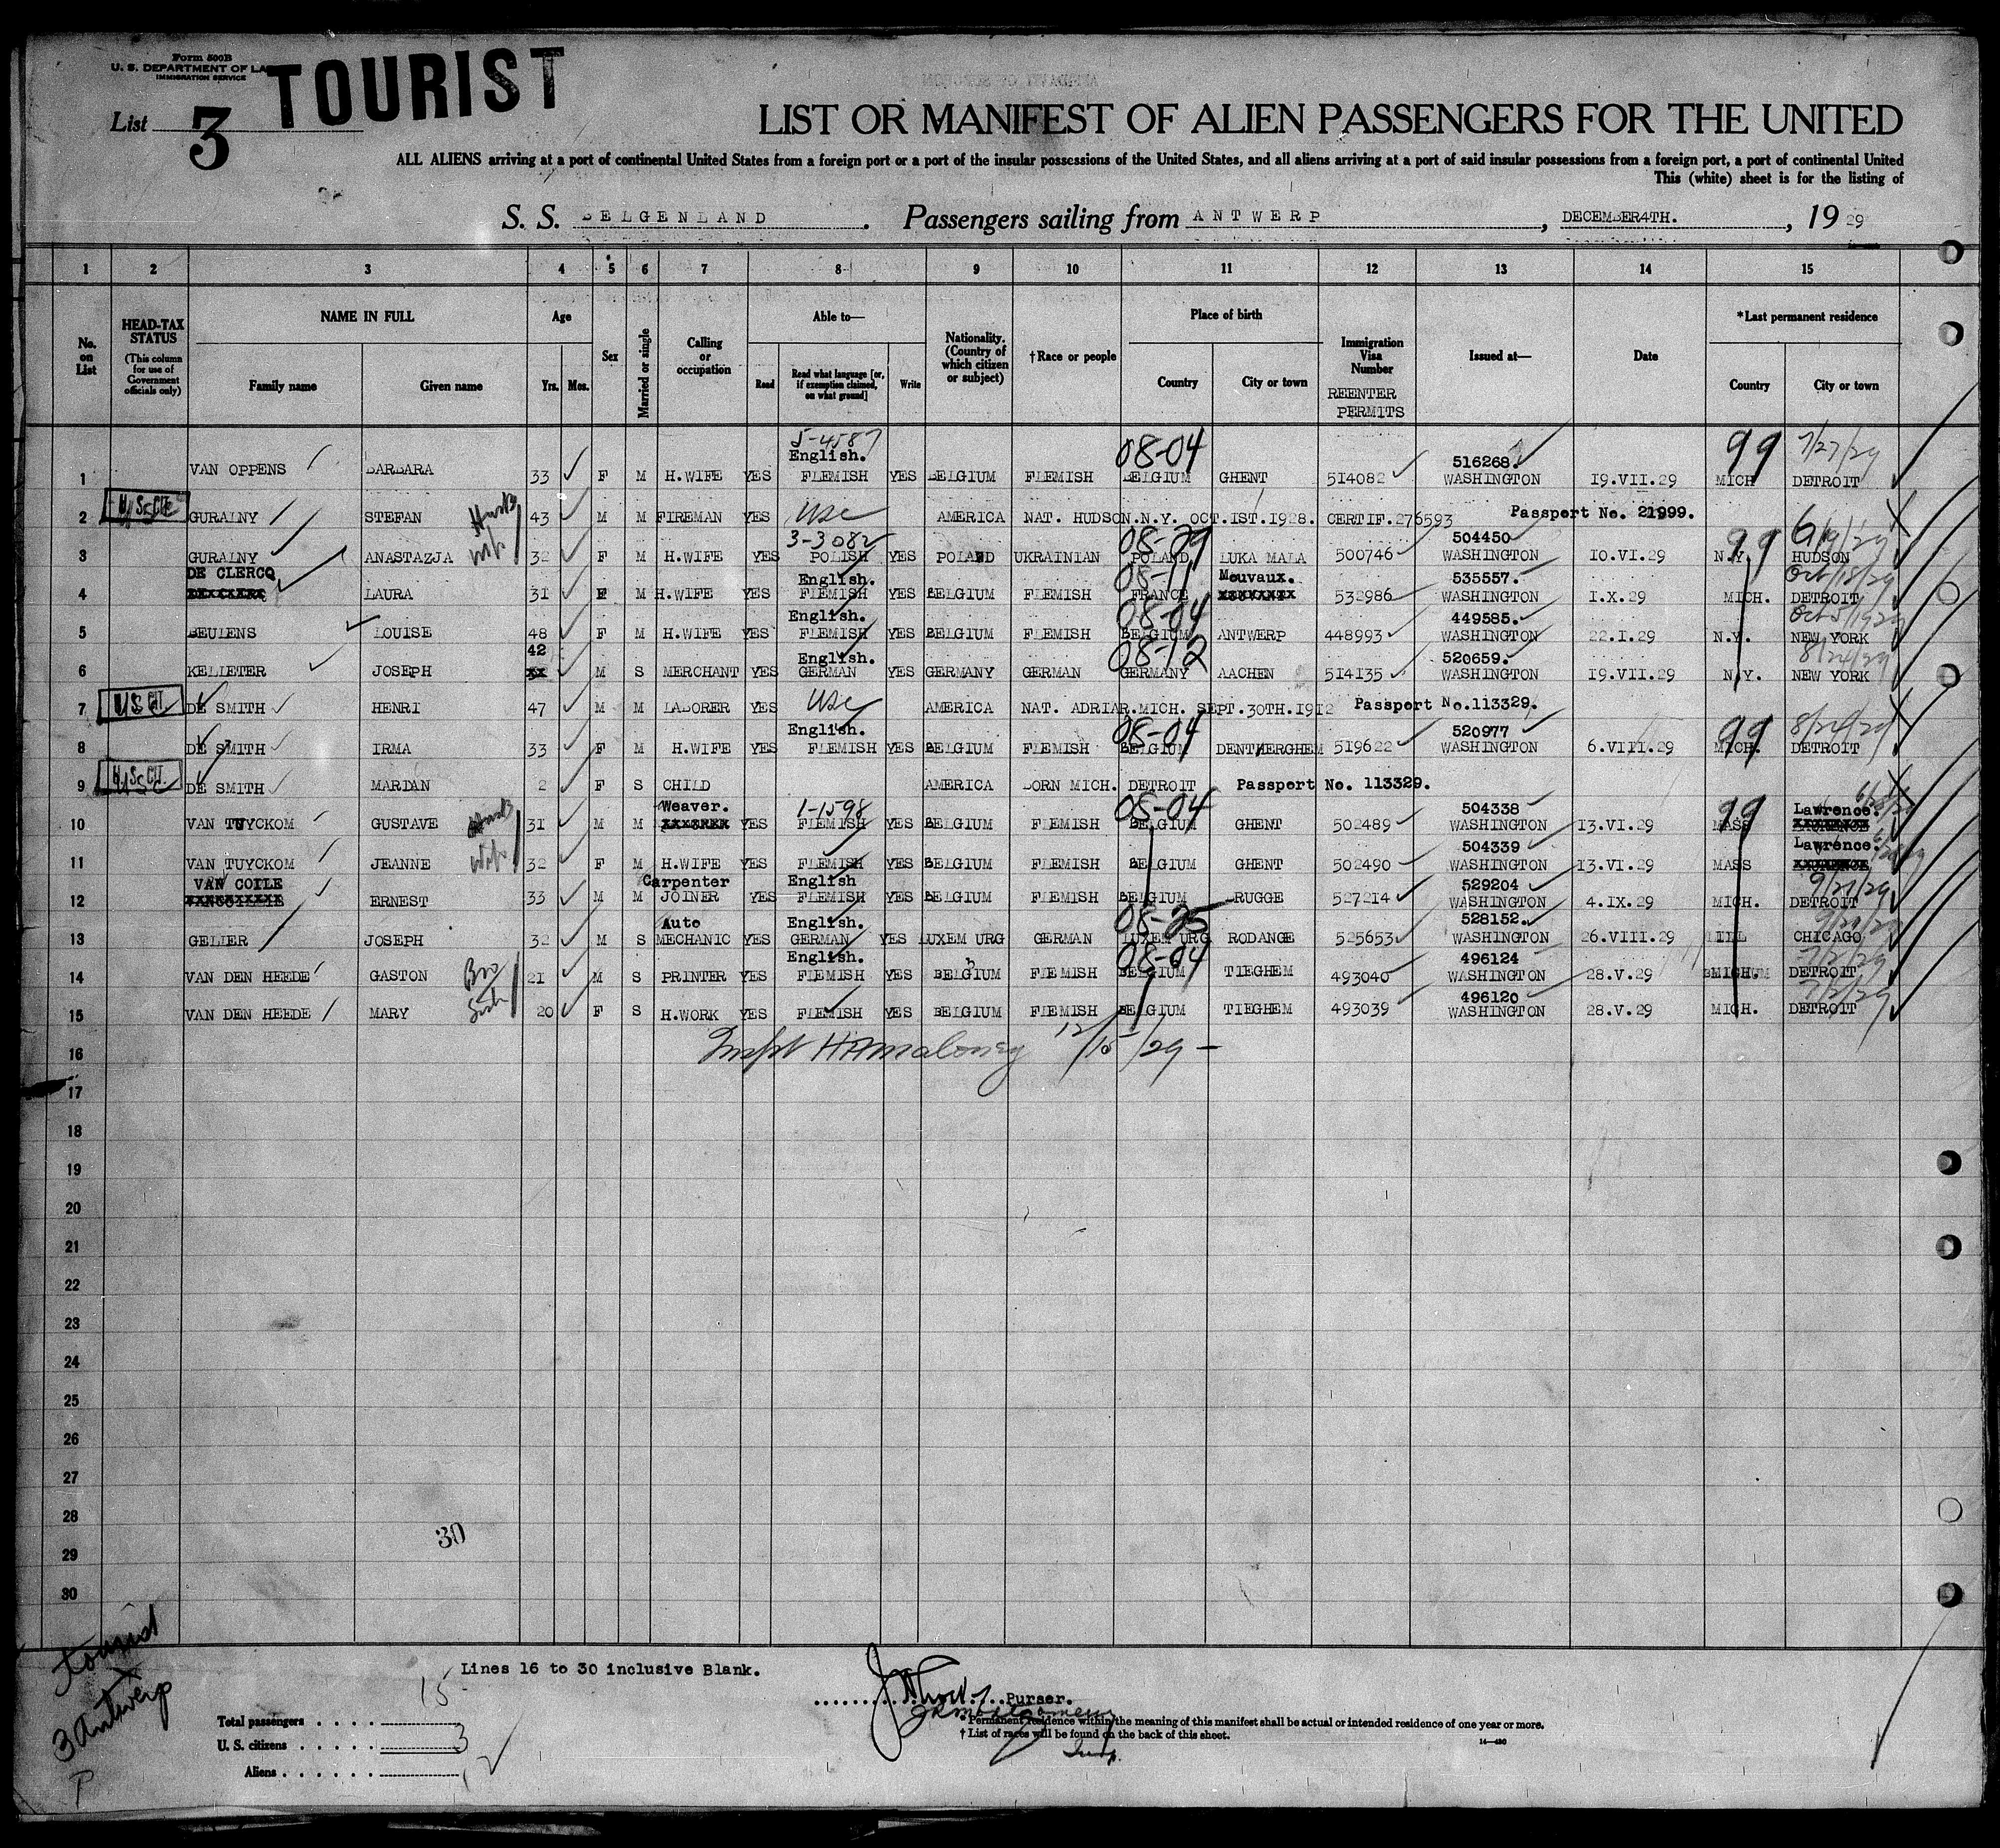 Form 500B
U. S. DEPARTMENT OF LA
IMMIGRATION SERVICE
TOURIST
List 3
LIST OR MANIFEST OF ALIEN PASSENGERS FOR THE UNITED
ALL ALIENS arriving at a port of continental United States from a foreign port or a port of the insular possessions of the United States, and all aliens arriving at a port of said insular possessions from a foreign port, a port of continental United
This (white) sheet is for the listing of
S. S. BELGENLAND. Passengers sailing from ANTWERP, DECEMBER4TH., 19 29
1 2 3 4 5 6 7 8 9 10 11 12 13 14 15
No. on List
HEAD-TAX STATUS (This column for use of Government officials only)
NAME IN FULL Family name Given name
Age Yrs. Mos.
Sex
Married or single
Calling or occupation
Able to— Read Read what language [or, if exemption claimed, on what ground] Write
Nationality. (Country of which citizen or subject)
†Race or people
Place of birth Country City or town
Immigration Visa Number REENTER PERMITS
Issued at—
Date
*Last permanent residence Country City or town
5-4587 08-04 99 7/27/29
English. 516268.
1 VAN OPPENS BARBARA 33 F M H.WIFE YES FLEMISH YES BELGIUM FLEMISH BELGIUM GHENT 514082 WASHINGTON 19.VII.29 MICH DETROIT
2 U.S. CIT. GURALNY STEFAN Husb 43 M M FIREMAN YES USC AMERICA NAT. HUDSON.N.Y. OCT.1ST.1928. CERTIF.276593 Passport No. 21999.
3-3082 08-29 504450 99 6/9/29
3 GURALNY ANASTAZJA wife 32 F M H.WIFE YES POLISH YES POLAND UKRAINIAN POLAND LUKA MALA 500746 WASHINGTON 10.VI.29 N.Y. HUDSON
DE CLERCQ English. 08-11 Mouvaux. 535557. Oct/18/29
4 LAURA 31 F M H.WIFE YES FLEMISH YES BELGIUM FLEMISH FRANCE 532986 WASHINGTON 1.X.29 MICH. DETROIT
English. 08-04 449585. Oct 5/1929
5 BEULENS LOUISE 48 F M H.WIFE YES FLEMISH YES BELGIUM FLEMISH BELGIUM ANTWERP 448993 WASHINGTON 22.I.29 N.Y. NEW YORK
42 English. 08-12 520659. 8/24/29
6 KELLETER JOSEPH xx M S MERCHANT YES GERMAN YES GERMANY GERMAN GERMANY AACHEN 514135 WASHINGTON 19.VII.29 N.Y. NEW YORK
7 U.S. CIT. DE SMITH HENRI 47 M M LABORER YES USC AMERICA NAT. ADRIAN.MICH. SEPT.30TH.1912 Passport No.113329.
English. 08-04 520977 99 8/24/29
8 DE SMITH IRMA 33 F M H.WIFE YES FLEMISH YES BELGIUM FLEMISH BELGIUM DENTHERGHEM 519622 WASHINGTON 6.VIII.29 MICH. DETROIT
9 U.S. CIT. DE SMITH MARIAN 2 F S CHILD AMERICA BORN MICH. DETROIT Passport No. 113329.
Weaver. 1-1598 08-04 504338 99 Lawrence.
10 VAN TUYCKOM GUSTAVE Husb 31 M M YES FLEMISH YES BELGIUM FLEMISH BELGIUM GHENT 502489 WASHINGTON 13.VI.29 MASS
504339 Lawrence.
11 VAN TUYCKOM JEANNE wife 32 F M H.WIFE YES FLEMISH YES BELGIUM FLEMISH BELGIUM GHENT 502490 WASHINGTON 13.VI.29 MASS
VAN COILE Carpenter English 529204 9/21/29
12 ERNEST 33 M M JOINER YES FLEMISH YES BELGIUM FLEMISH BELGIUM RUGGE 527214 WASHINGTON 4.IX.29 MICH. DETROIT
Auto English. 08-25 528152.
13 GELIER JOSEPH 32 M S MECHANIC YES GERMAN YES LUXEM URG GERMAN LUXEM URG RODANGE 525653 WASHINGTON 26.VIII.29 ILL CHICAGO
Bro English. 08-04 496124 7/2/29
14 VAN DEN HEEDE GASTON 21 M S PRINTER YES FLEMISH YES BELGIUM FLEMISH BELGIUM TIEGHEM 493040 WASHINGTON 28.V.29 DETROIT
Sister 496120 7/2/29
15 VAN DEN HEEDE MARY 20 F S H.WORK YES FLEMISH YES BELGIUM FLEMISH BELGIUM TIEGHEM 493039 WASHINGTON 28.V.29 MICH. DETROIT
Inspt HAMaloney 12/15/29 —
16
17
18
19
20
21
22
23
24
25
26
27
28
30
29
30
tourist
3 Antwerp
P
Lines 16 to 30 inclusive Blank.
Purser.
Total passengers 15
U. S. citizens 3
Aliens
* Permanent residence within the meaning of this manifest shall be actual or intended residence of one year or more.
† List of races will be found on the back of this sheet.
Insp.
14—430